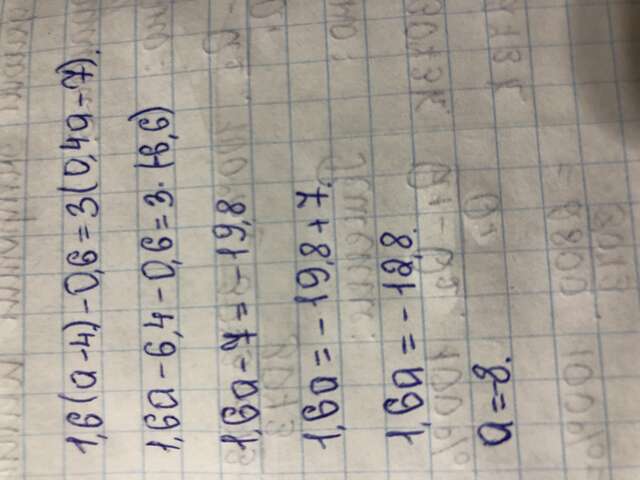 1,6(a-4)-0,6=3(0,4a-7).
1,6a-6,4-0,6=3·(-6,6)
1,6a-7=-19,8
1,6a=-19,8+7.
1,6a=-12,8.
a=-8.